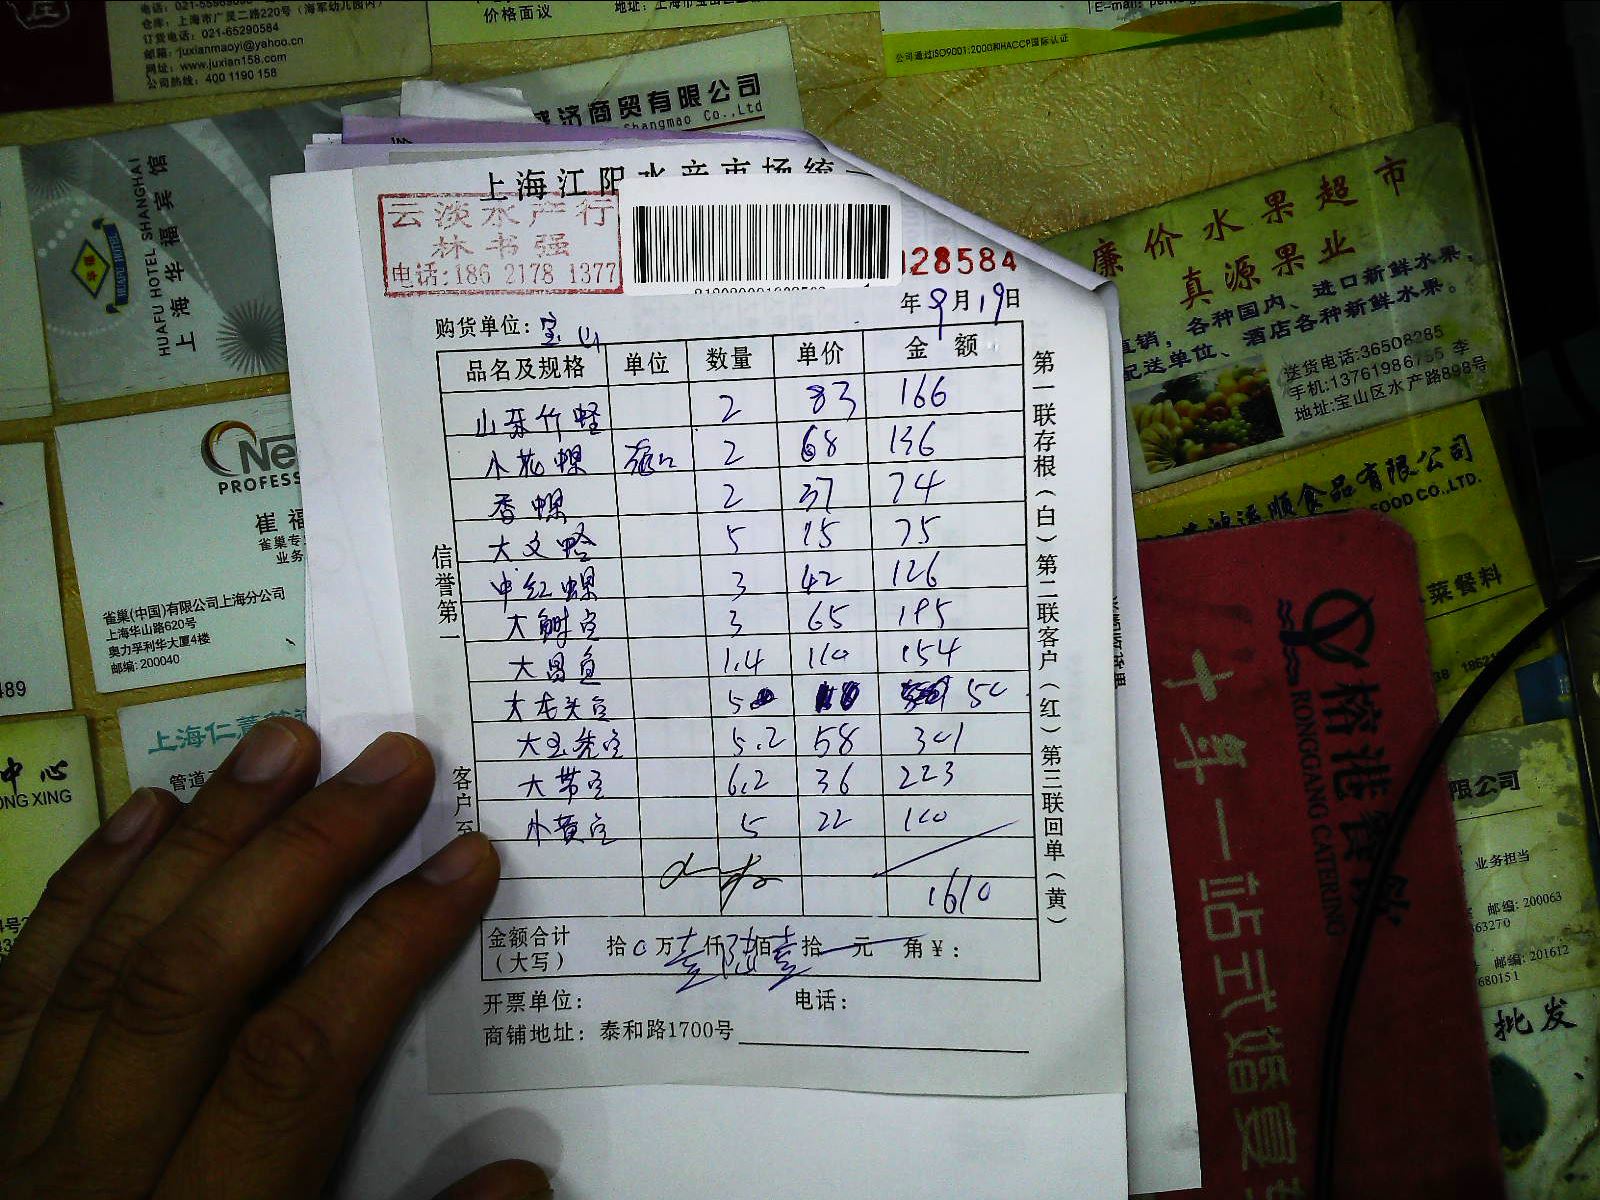 电话: 021-55969096
仓库: 上海市广灵二路220号 (海军幼儿园内)
订货电话: 021-65290584
邮箱: juxianmaoyi@yahoo.cn
网址: www.juxian158.com
公司热线: 400 1190 158
价格面议
公司通过ISO9001:2000和HACCP国际认证
济商贸有限公司
Shangmao Co.,Ltd
HUAFU HOTEL SHANGHAI
上海华福宾馆
HUAFU HOTEL
PROFESS
崔福
业务
雀巢(中国)有限公司上海分公司
上海华山路620号
奥力孚利华大厦4楼
邮编: 200040
上海仁
管道
中心
ONG XING
上海江阳水产市场统一
云淡水产行
林书强
电话:186 2178 1377
28584
年9月19日
购货单位: 宝山
品名及规格 单位 数量 单价 金额
2 83 166
小花螺 2 68 136
香螺 2 37 74
大文蛤 5 15 75
中红螺 3 42 126
3 65 195
大昌鱼 1.4 110 154
大龙头鱼 5 50
5.2 58 301
大带鱼 6.2 36 223
小黄鱼 5 22 110
1610
金额合计
(大写)
拾0万壹仟陆佰壹拾 元 角 ¥:
开票单位: 电话:
商铺地址: 泰和路1700号
信誉第一
客户至
第一联存根(白)第二联客户(红)第三联回单(黄)
廉价水果超市
真源果业
直销,各种国内、进口新鲜水果,
配送单位、酒店各种新鲜水果。
送货电话:36508285
李
地址:宝山区水产路898号
鸿运顺食品有限公司
FOOD CO.,LTD.
菜餐料
榕港餐饮
RONGGANG CATERING
十年一站式婚宴
限公司
业务担当
邮编: 200063
邮编: 201612
批发